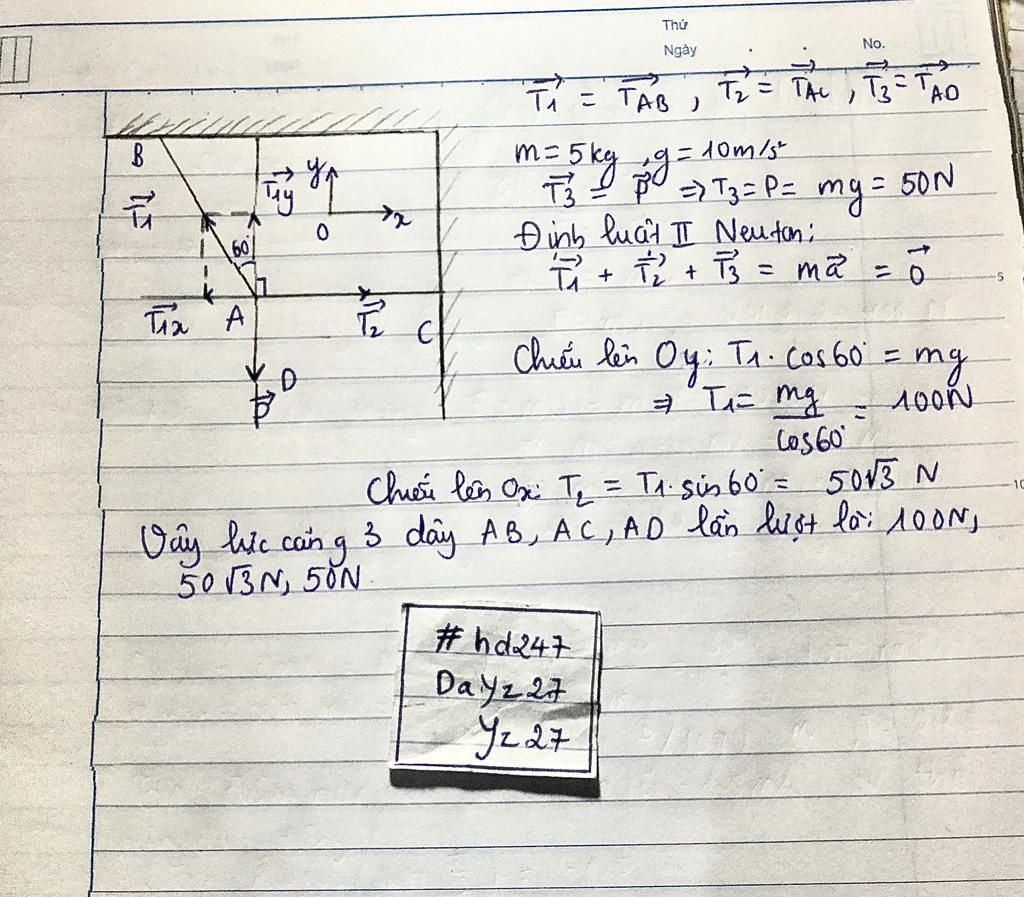 Thứ
Ngày
No.
T₁ = T_AB, T₂ = T_AC, T₃ = T_AD
B
T₁
T₁y
y
60°
O
x
T₁x
A
T₂
C
D
P
m = 5kg, g = 10m/s²
T₃ = P ⇒ T₃ = P = mg = 50N
Định luật II Neutan:
T₁ + T₂ + T₃ = ma = 0
5
Chiếu lên Oy: T₁ . cos60° = mg
⇒ T₁ = mg / cos60° = 100N
Chiếu lên Ox: T₂ = T₁ . sin60° = 50√3 N
10
Vậy lực căng 3 dây AB, AC, AD lần lượt là: 100N,
50√3N, 50N
# hd247
Dayz27
Yz27